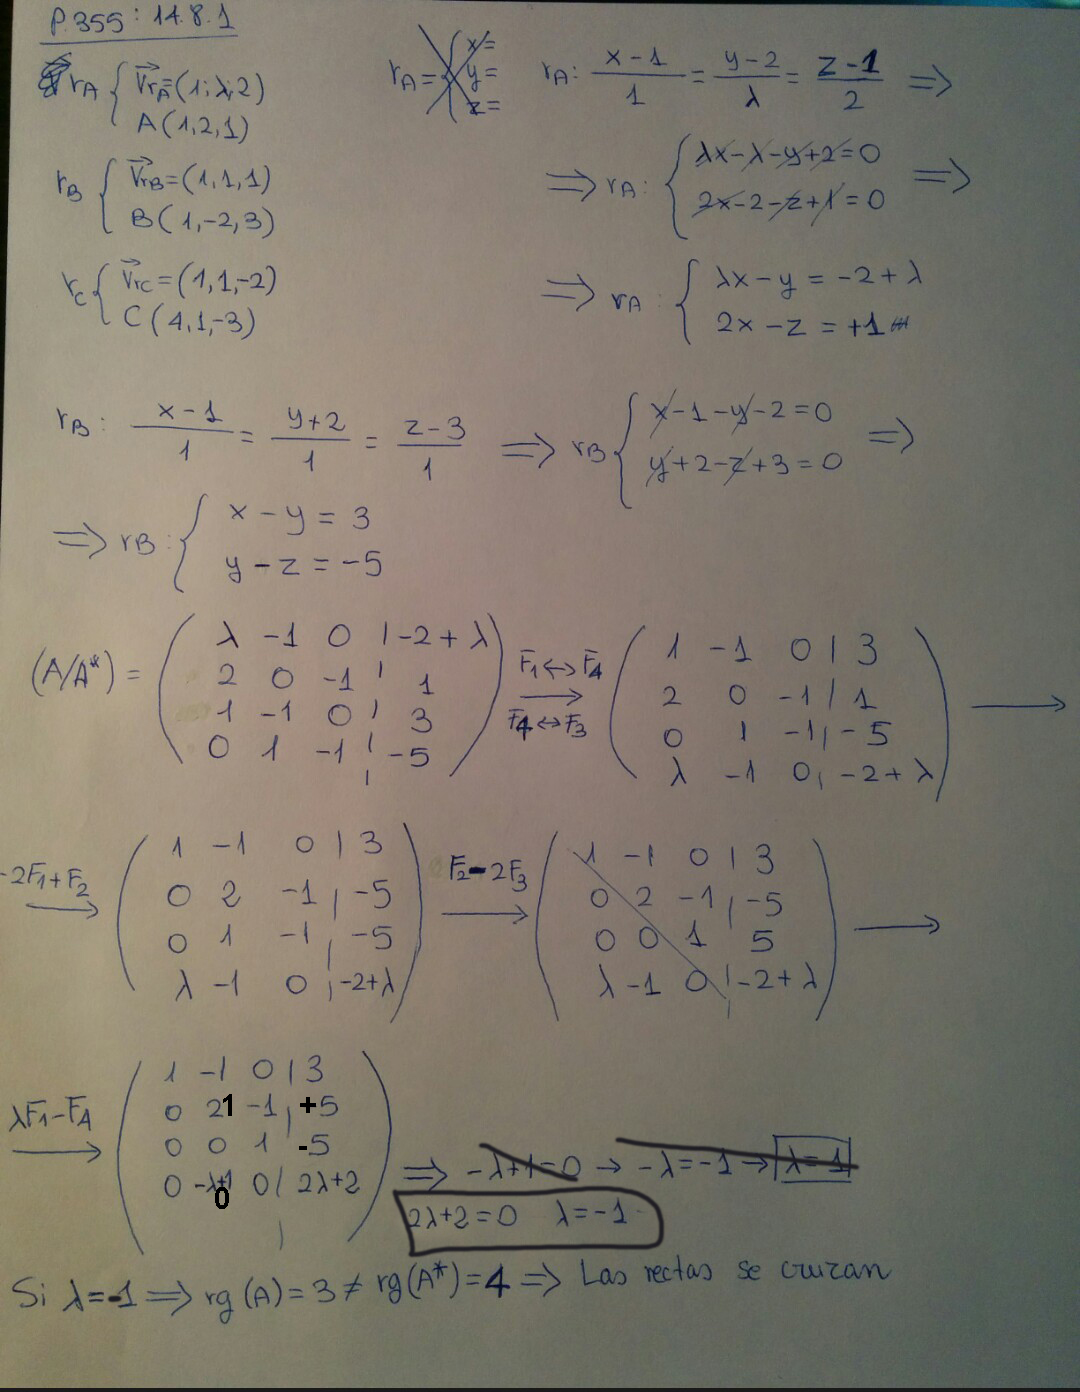 P.355: 14.8.1
rA { v⃗rA=(1,λ,2)
A(1,2,1)
rA = { x=
y=
z=
rA: (x-1)/1 = (y-2)/λ = (z-1)/2 ⇒
⇒ rA: { λx-λ-y+2=0
2x-2-z+1=0 ⇒
rB { v⃗rB=(1,1,1)
B(1,-2,3)
rC { v⃗rC=(1,1,-2)
C(4,1,-3)
⇒ rA: { λx-y = -2+λ
2x-z = +1
rB: (x-1)/1 = (y+2)/1 = (z-3)/1 ⇒ rB { x-1-y-2=0
y+2-z+3=0 ⇒
⇒ rB: { x-y = 3
y-z = -5
(A/A*) = ( λ -1 0 | -2+λ
2 0 -1 | 1
1 -1 0 | 3
0 1 -1 | -5 )
F1↔F4
F4↔F3
→
( 1 -1 0 | 3
2 0 -1 | 1
0 1 -1 | -5
λ -1 0 | -2+λ ) →
-2F1+F2 →
( 1 -1 0 | 3
0 2 -1 | -5
0 1 -1 | -5
λ -1 0 | -2+λ )
F2-2F3 →
( 1 -1 0 | 3
0 2 -1 | -5
0 0 1 5
λ -1 0 | -2+λ ) →
λF1-F4 →
( 1 -1 0 | 3
0 21 -1 | +5
0 0 1 -5
0 -λ+1 0 | 2λ+2 )
0
⇒ -λ+1=0 → -λ=-1 → λ=1
2λ+2=0 λ=-1
Si λ=-1 ⇒ rg(A)=3 ≠ rg(A*)=4 ⇒ Las rectas se cruzan